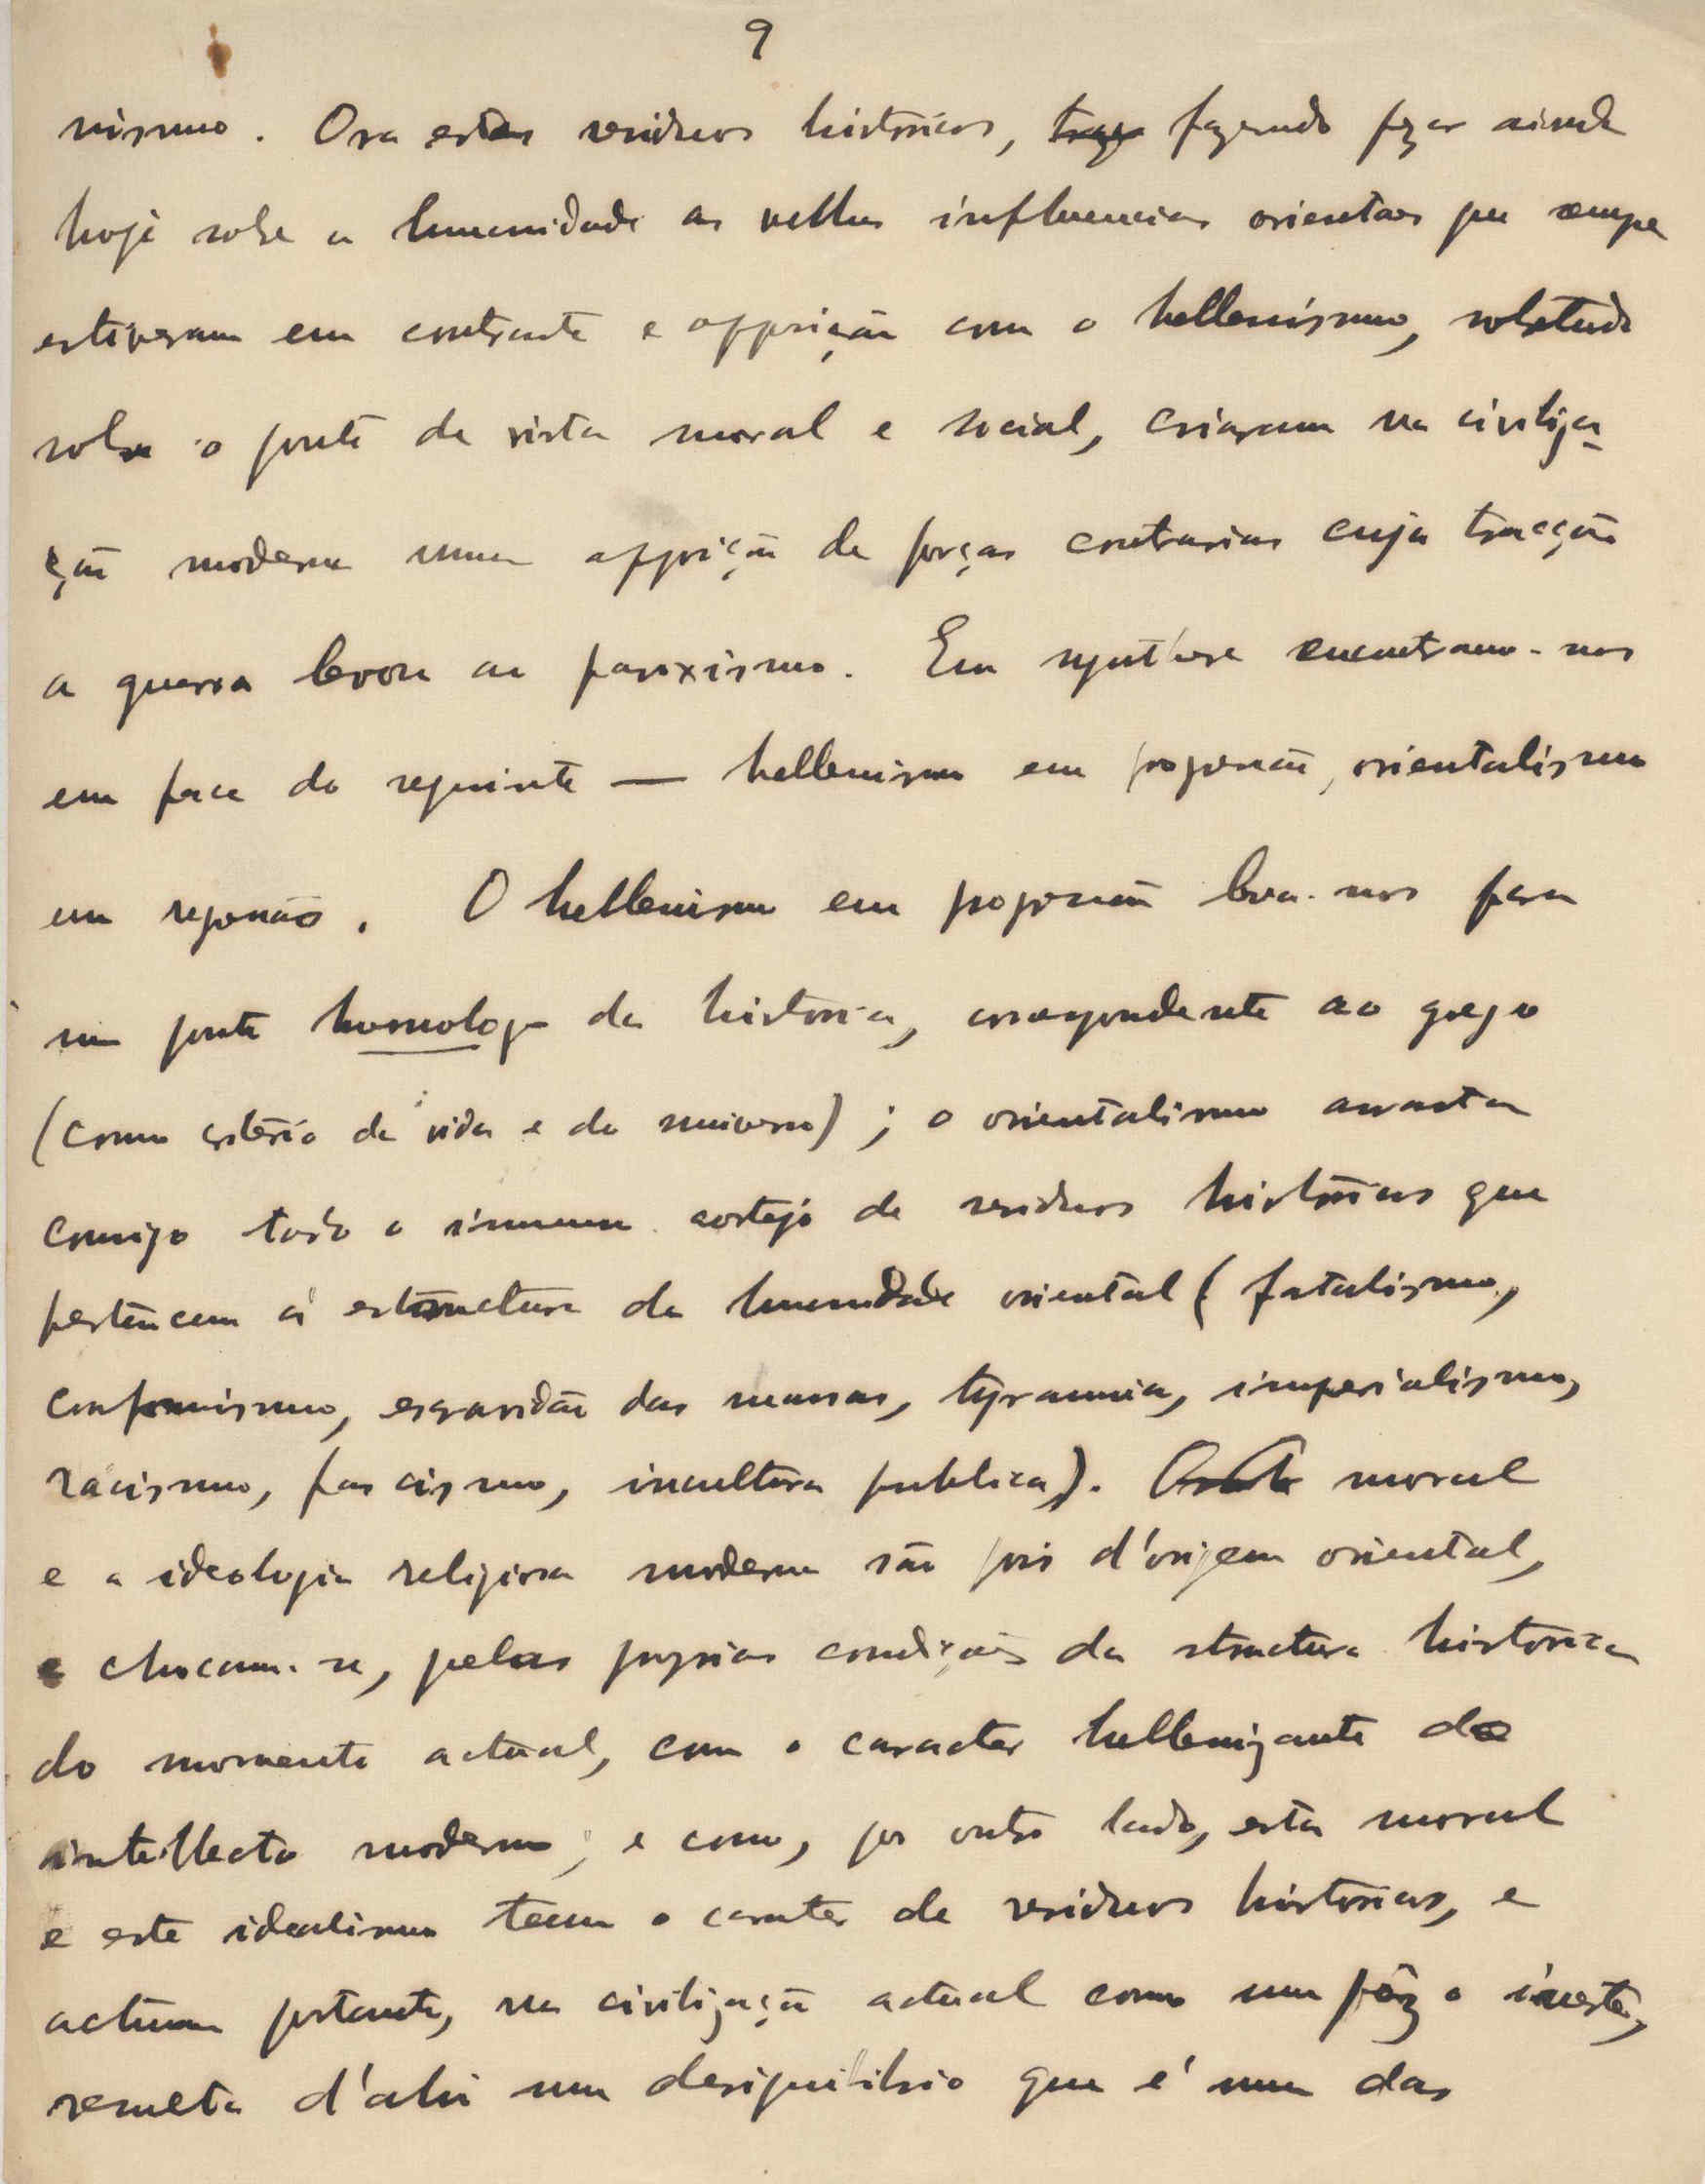 9
nismo. Ora estes residuos históricos, fazendo pezar ainda
hoje sobre a humanidade as velhas influencias orientaes que sempre
estiveram em contraste e opposição com o hellenismo, sobretudo
sobre o ponto de vista moral e social, criaram na civiliza-
ção moderna uma opposição de forças contrarias cuja tracção
a guerra levou ao paroxismo. Em synthese encontramo-nos
em face do seguinte — hellenismo em progressão, orientalismo
em regressão. O hellenismo em progressão leva-nos para
um ponto homologo da historia, correspondente ao grego
(como critério da vida e do universo); o orientalismo arrasta
comsigo todo o immenso cortejo de residuos históricos que
pertencem á estructura da humanidade oriental (fatalismo,
conformismo, escravidão das massas, tyrannia, imperialismo,
racismo, fascismo, incultura publica). moral
e a ideologia religiosa moderna são pois d'origem oriental,
e chocam-se, pelas proprias condições da structura historica
do momento actual, com o caracter hellenizante do
intellecto moderno; e como, por outro lado, esta moral
e este idealismo teem o caracter de residuos históricos, e
actuam portanto, na civilização actual como um pêzo inerte,
resulta d'ahi um desiquilibrio que é uma das